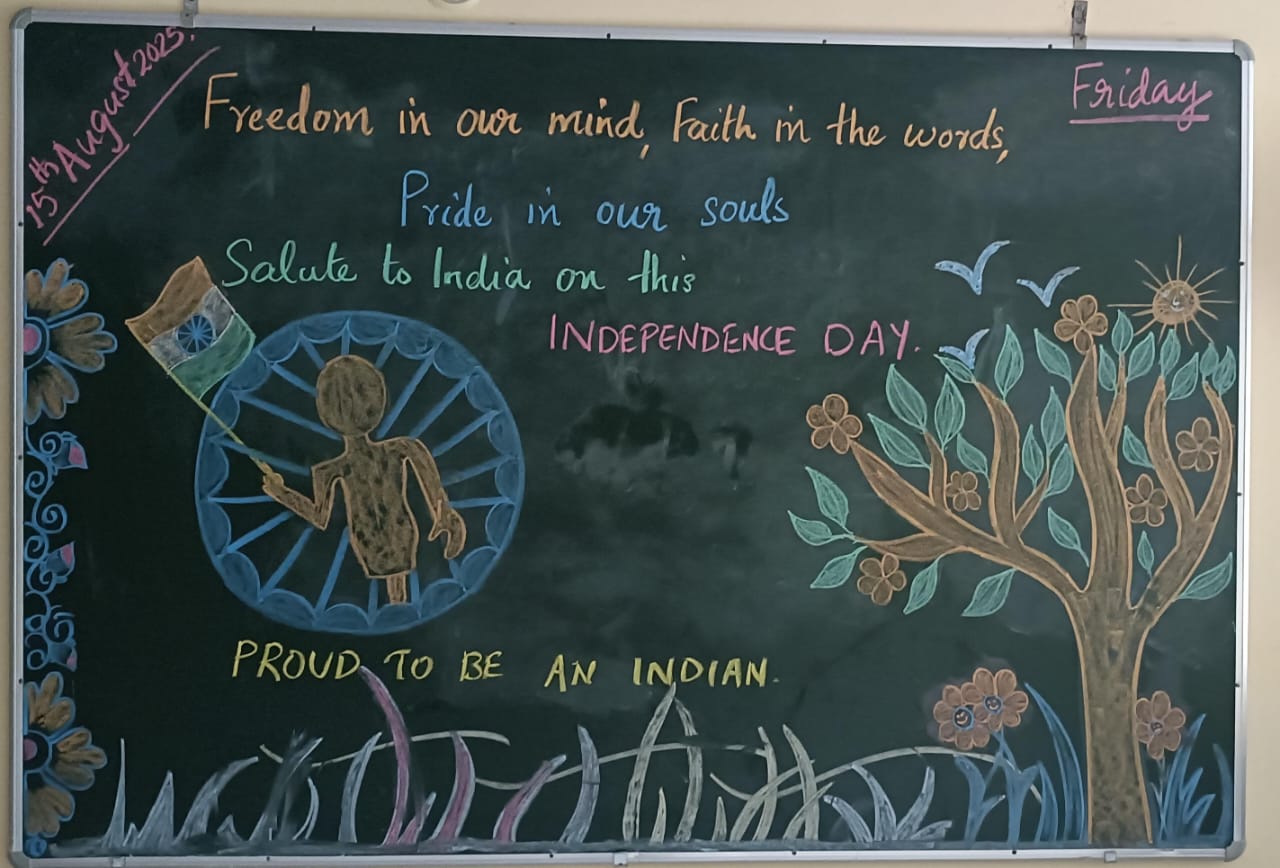 15th August 2025.
Friday
Freedom in our mind, Faith in the words,
Pride in our souls
Salute to India on this
INDEPENDENCE DAY.
PROUD TO BE AN INDIAN.